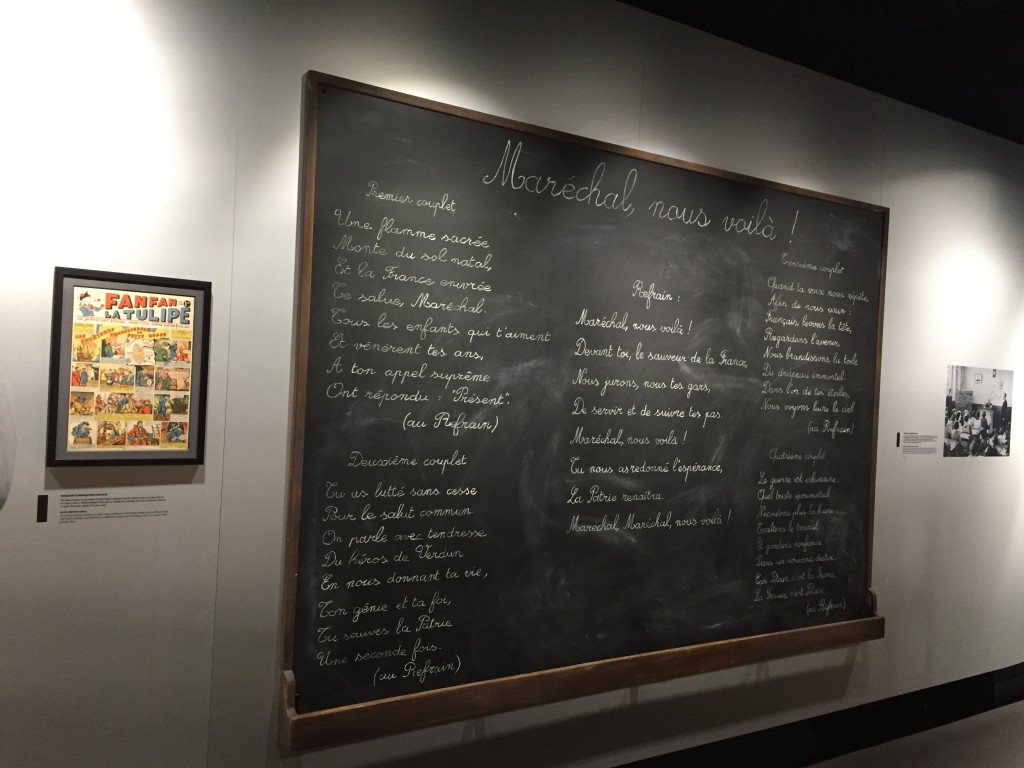 FANFAN
LA TULIPE
Maréchal, nous voilà !
Premier couplet
Une flamme sacrée
Monte du sol natal,
Et la France enivrée
Te salue, Maréchal.
Tous les enfants qui t'aiment
Et vénèrent tes ans,
A ton appel suprême
Ont répondu : "Présent".
(au Refrain)
Deuxième couplet
Tu as lutté sans cesse
Pour le salut commun
On parle avec tendresse
Du héros de Verdun
En nous donnant ta vie,
Ton génie et ta foi,
Tu sauves la Patrie
Une seconde fois.
(au Refrain)
Refrain :
Maréchal, nous voilà !
Devant toi, le sauveur de la France,
Nous jurons, nous tes gars,
De servir et de suivre tes pas.
Maréchal, nous voilà !
Tu nous as redonné l'espérance,
La Patrie renaîtra.
Maréchal, Maréchal, nous voilà !
Troisième couplet
Quand ta voix nous répète,
Afin de nous unir :
Français levons la tête,
Regardons l'avenir,
Nous brandissons la toile
Du drapeau immortel.
Dans l'or de tes étoiles,
Nous voyons luire le ciel
(au Refrain)
Quatrième couplet
La guerre est inhumaine,
Quel triste épouvantail
N'écoutons plus la haine
Exaltons le travail
Et gardons confiance
Dans un nouveau destin
Car Pétain, c'est la France
La France, c'est Pétain
(au Refrain)